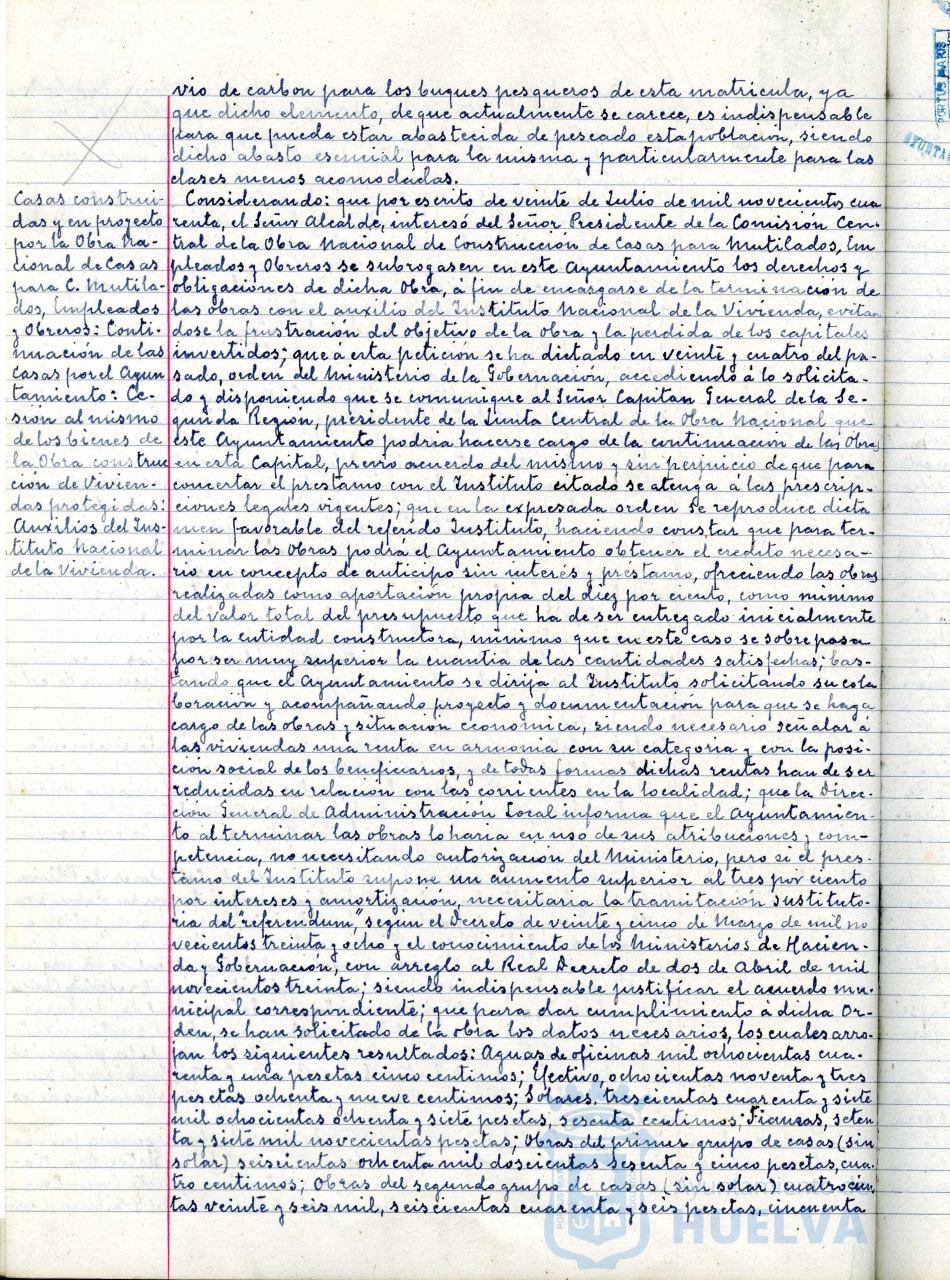 vio de carbon para los buques pesqueros de esta matricula, ya
que dicho elemento, de que actualmente se carece, es indispensable
para que pueda estar abastecida de pescado esta población, siendo
dicho abasto esencial para la misma y particularmente para las
clases menos acomodadas.
Casas construi-
das y en proyecto
por la Obra Na-
cional de Casas
para C. Mutila-
dos, Empleados
y Obreros: Conti-
nuación de las
casas por el Ayun
tamiento: Ce-
sión al mismo
de los bienes de
la Obra construc
ción de Vivien-
das protegidas:
Auxilios del Ins-
tituto Nacional
de la Vivienda.
Considerando: que por escrito de veinte de Julio de mil novecientos cua
renta, el Señor Alcalde, interesó del Señor Presidente de la Comisión Cen-
tral de la Obra Nacional de Construcción de Casas para Mutilados, Em
pleados y Obreros se subrogasen en este Ayuntamiento los derechos y
obligaciones de dicha Obra, á fin de encargarse de la terminacion de
las obras con el auxilio del Instituto Nacional de la Vivienda, evitan
dose la frustración del objetivo de la obra y la perdida de los capitales
invertidos; que á esta petición se ha dictado en veinte y cuatro del pa-
sado, orden del Ministerio de la Gobernación, accediendo á lo solicita-
do y disponiendo que se comunique al Señor Capitan General de la Se-
gunda Región, presidente de la Junta Central de la Obra Nacional que
este Ayuntamiento podria hacerse cargo de la continuación de las Obras
en esta Capital, previo acuerdo del mismo y sin perjuicio de que para
concertar el prestamo con el Instituto citado se atenga á las prescrip-
ciones legales vigentes; que en la expresada orden se reproduce dicta
men favorable del referido Instituto, haciendo constar que para ter-
minar las Obras podrá el Ayuntamiento obtener el credito necesa-
rio en concepto de anticipo sin interés y préstamo, ofreciendo las obras
realizadas como aportación propia del diez por ciento, como minimo
del valor total del presupuesto que ha de ser entregado inicialmente
por la entidad constructora, minimo que en este caso se sobrepasa
por ser muy superior la cuantia de las cantidades satisfechas; bas-
tando que el Ayuntamiento se dirija al Instituto solicitando su cola
boración y acompañando proyecto y documentación para que se haga
cargo de las obras y situación económica, siendo necesario señalar á
las viviendas una renta en armonia con su categoria y con la posi-
ción social de los beneficiarios, y de todas formas dichas rentas han de ser
reducidas en relación con las corrientes en la localidad; que la Direc-
ción General de Administración Local informa que el Ayuntamien-
to al terminar las obras lo haria en uso de sus atribuciones y com-
petencia, no necesitando autorización del Ministerio, pero si el pres-
tamo del Instituto supone un aumento superior al tres por ciento
por intereses y amortización, necesitaria la tramitación sustituto-
ria del "referendum", según el Decreto de veinte y cinco de Marzo de mil no
vecientos treinta y ocho y el conocimiento de los Ministerios de Hacien-
da y Gobernación, con arreglo al Real Decreto de dos de Abril de mil
novecientos treinta; siendo indispensable justificar el acuerdo mu-
nicipal correspondiente; que para dar cumplimiento á dicha Or-
den, se han solicitado de la obra los datos necesarios, los cuales arro-
jan los siguientes resultados: Aguas de oficinas mil ochocientas cua-
renta y una pesetas cinco centimos; Efectivo, ochocientas noventa y tres
pesetas ochenta y nueve centimos; Solares, trescientas cuarenta y siete
mil ochocientas ochenta y siete pesetas, sesenta centimos; Fianzas, seten
ta y siete mil novecientas pesetas; Obras del primer grupo de casas (sin
solar) seiscientas ochenta mil doscientas sesenta y cinco pesetas, cua-
tro centimos; Obras del segundo grupo de casas (sin solar) cuatrocien
tas veinte y seis mil, seiscientas cuarenta y seis pesetas, cincuenta
HUELVA